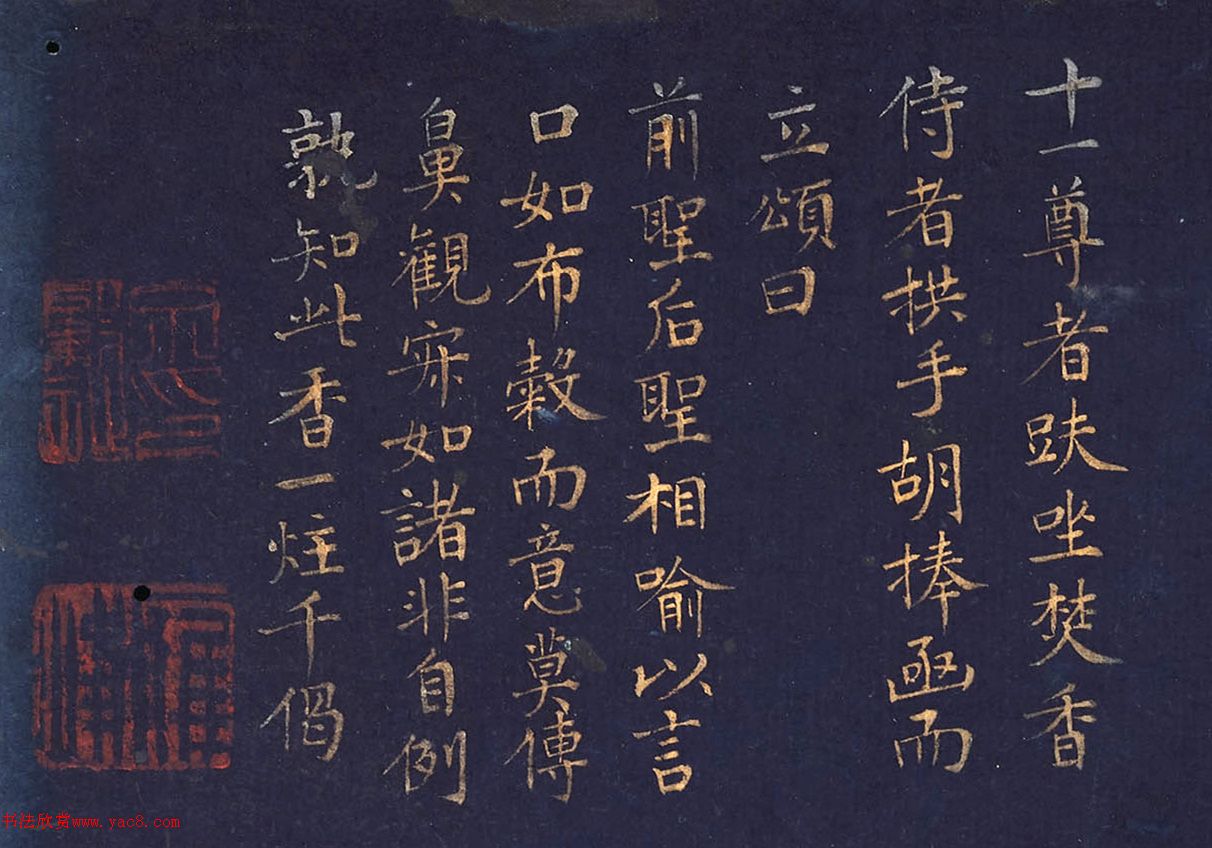 十一尊者趺坐焚香
侍者拱手胡捧函而
立頌曰
前聖后聖相喻以言
口如布穀而意莫傳
鼻觀寂如諸非自例
孰知此香一炷千偈
书法欣赏www.yac8.com